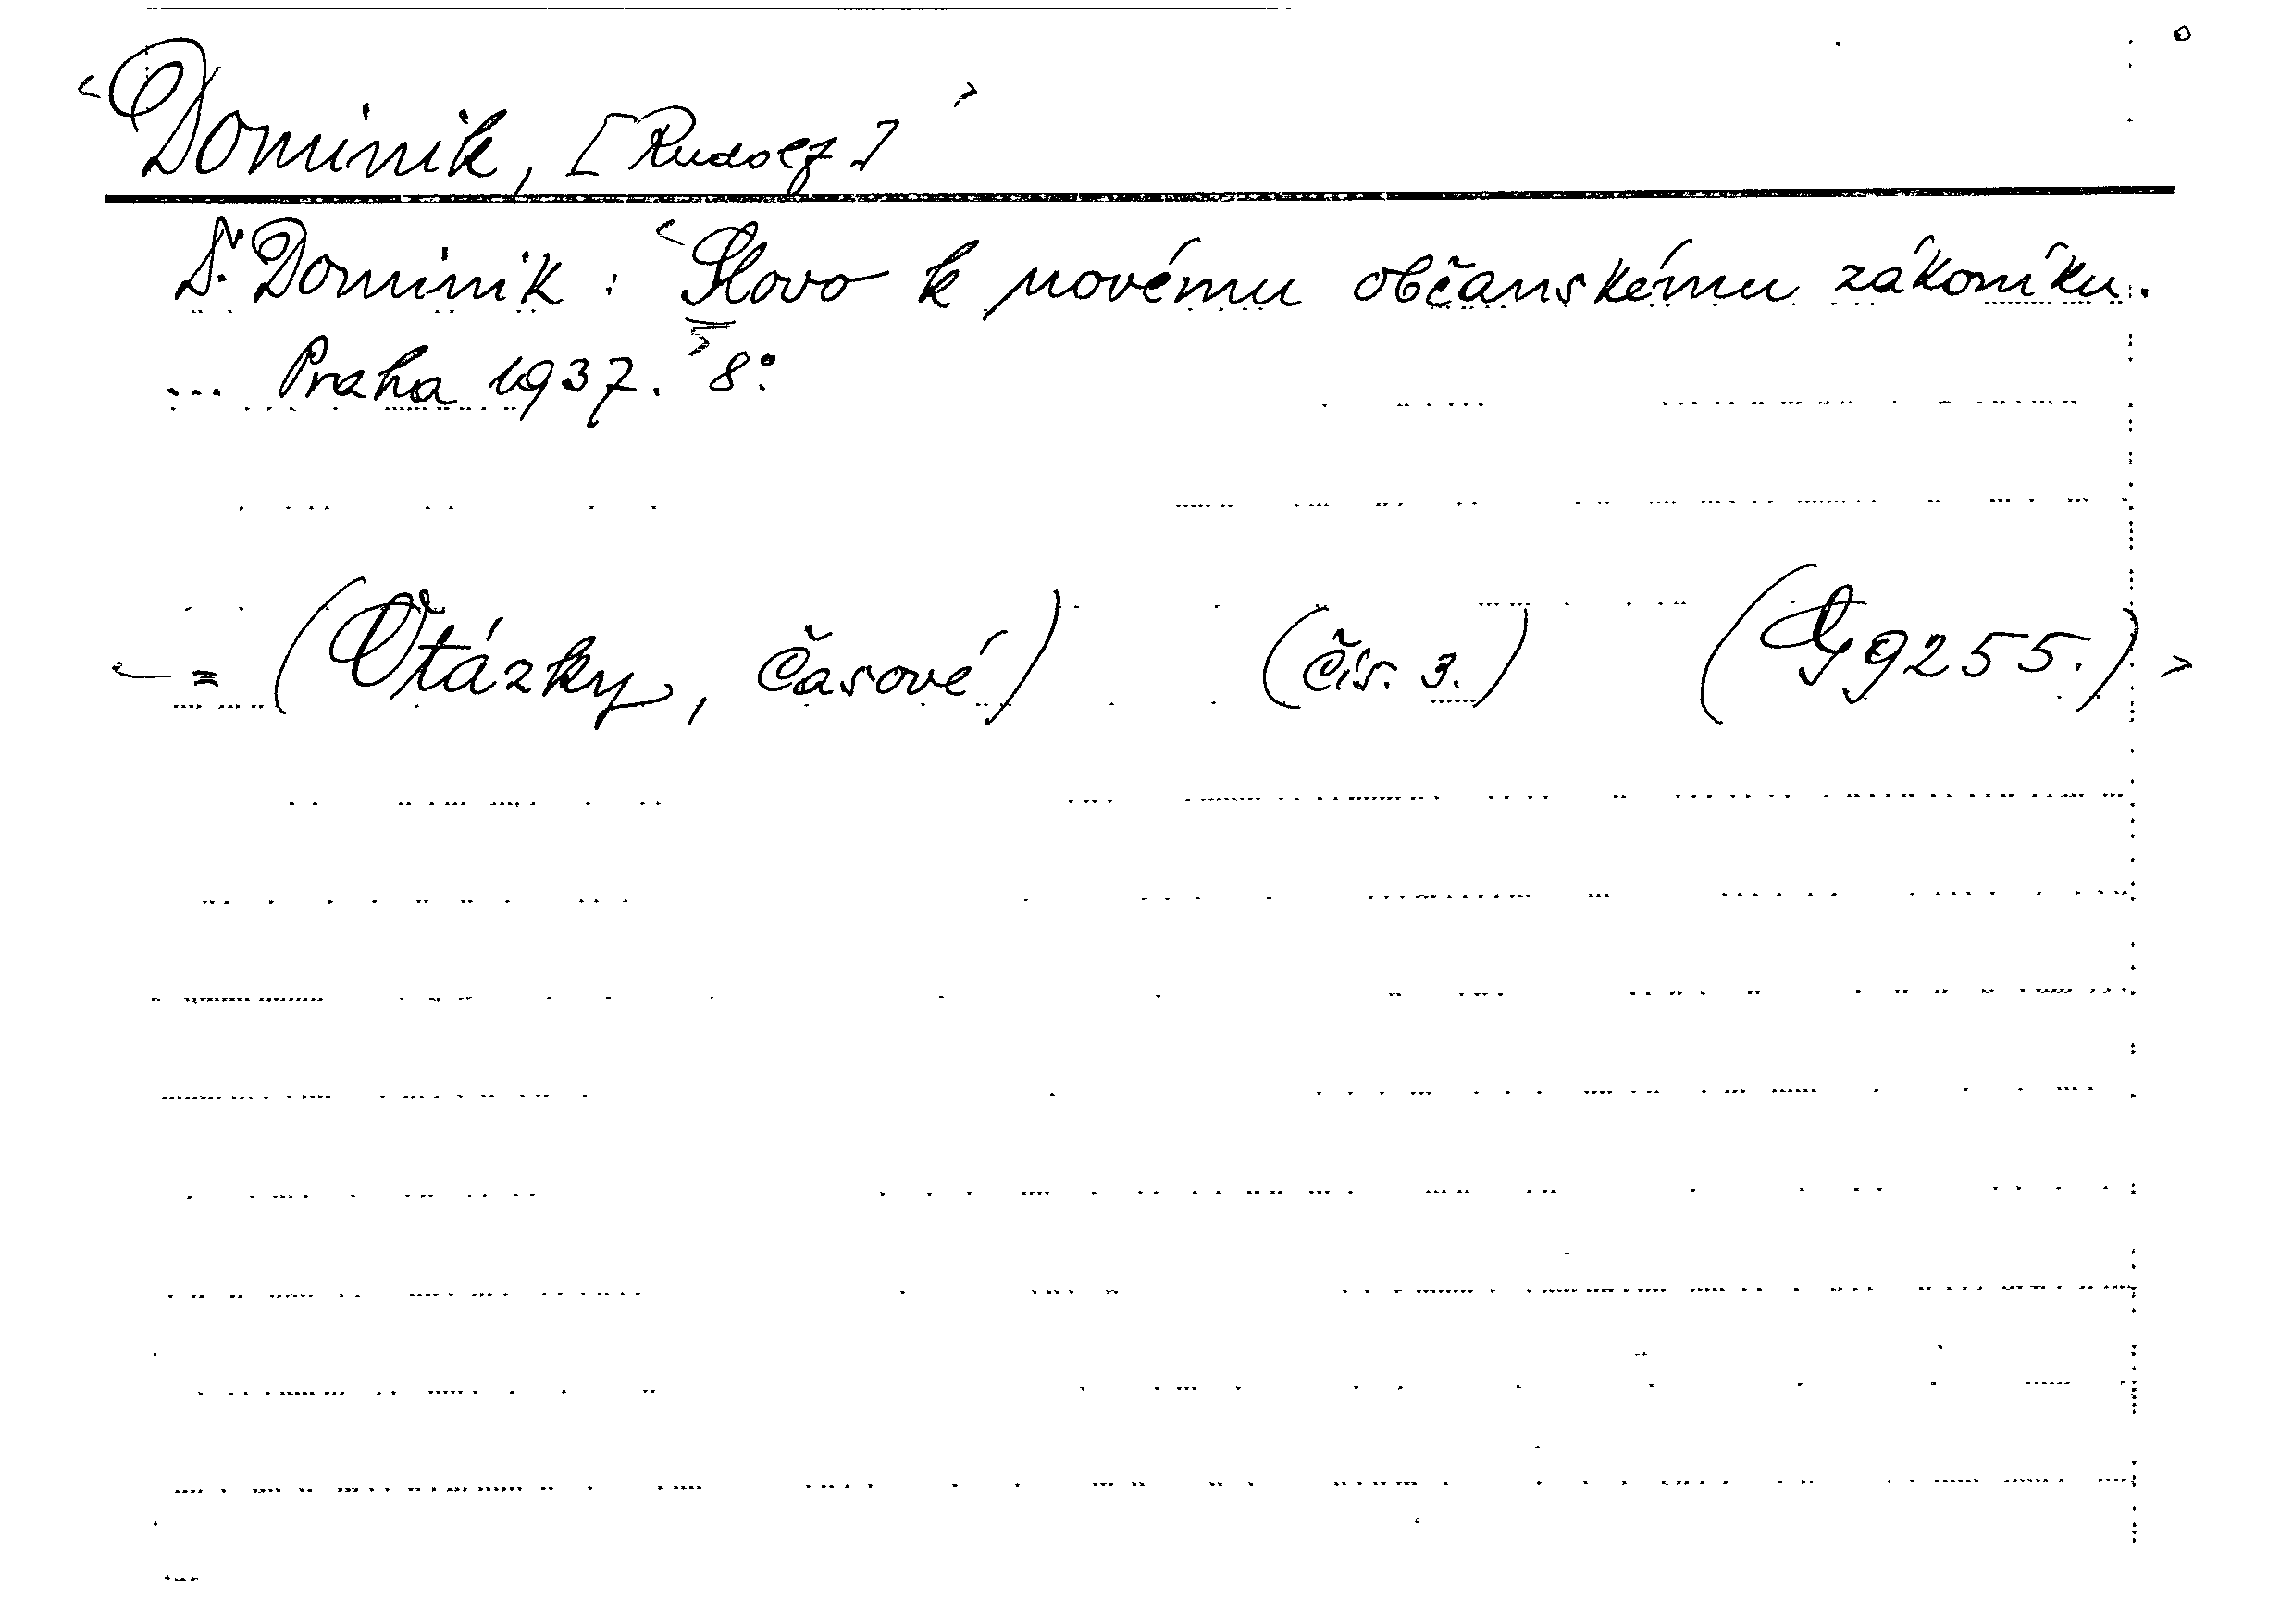 <Dominik, [Rudolf]>
Dr. Dominik : <Slovo k novému občanskému zákoníku.
... Praha 1937.> 8°.
<- = (Otázky, Časové) (čís. 3.) (G 9255.)>